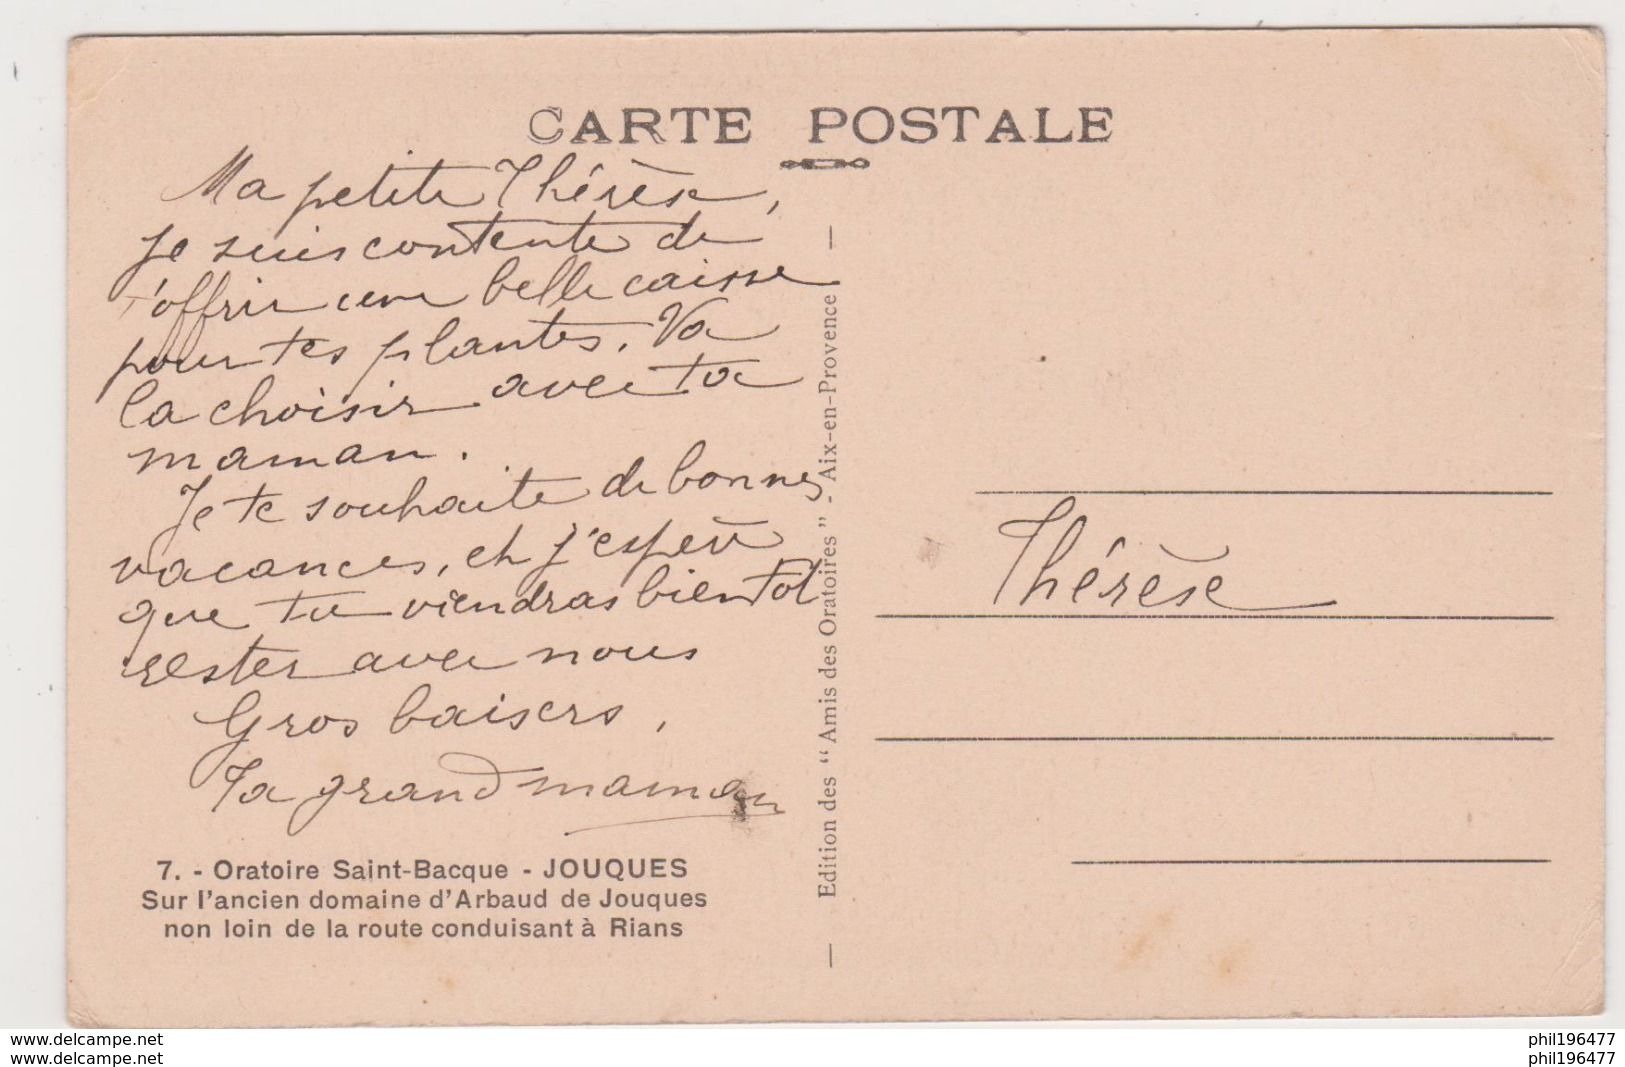 CARTE POSTALE
Ma petite Thérèse,
je suis contente de
t'offrir une belle caisse
pour tes plantes. Va
la choisir avec ta
maman.
Je te souhaite de bonnes
vacances, et j'espère
que tu viendras bientôt
rester avec nous
Gros baisers,
Ta grand maman
7. - Oratoire Saint-Bacque - JOUQUES
Sur l'ancien domaine d'Arbaud de Jouques
non loin de la route conduisant à Rians
— Edition des " Amis des Oratoires " - Aix-en-Provence —
Thérèse
www.delcampe.net
www.delcampe.net
phil196477
phil196477